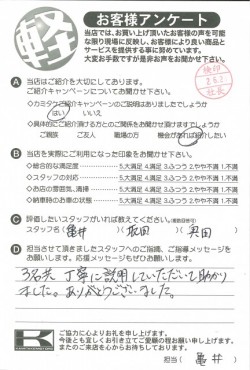 軽
お客様アンケート
当店では、お買い上げ頂いたお客様の声を可能
な限り現場に反映し、お客様により良い商品と
サービスを提供する事に努めています。
大変お手数ですが是非お声をお聞かせ下さい。
A 当店はご紹介を大切にしております。
ご紹介キャンペーンについてお聞かせ下さい。
ご紹介キャンペーンのご説明はありましたでしょうか
はい いいえ
ご親族 ご友人 職場の方 機会があれば紹介したい
B 当店を実際にご利用になった印象をお聞かせ下さい。
◇総合的な満足度 5.大満足 4.満足 3.ふつう 2.やや不満 1.不満
◇スタッフの対応 5.大満足 4.満足 3.ふつう 2.やや不満 1.不満
◇お店の雰囲気、清掃 5.大満足 4.満足 3.ふつう 2.やや不満 1.不満
◇納車時のお車の状態 5.大満足 4.満足 3.ふつう 2.やや不満 1.不満
C 評価したいスタッフがいれば教えてください。
スタッフ名( 亀井 坂田 奥田 )
D 担当させて頂きましたスタッフへのご指摘、ご指導メッセージを
お願いします。応援メッセージもぜひお願いします。
3名共 丁寧に説明していただいて助かり
ました。ありがとうございました。
K
ご協力に心よりお礼を申し上げます。
今後とも宜しくお引き立てご愛顧の程お願い申し上げます。
またのご来店を心からお待ちしております。
担当( 亀井 )